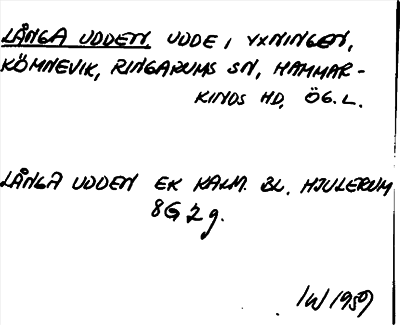 LÅNGA UDDEN, UDDE I YXNINGEN,
KÖMNEVIK, RINGARUMS SN, HAMMAR-
KINDS HD, ÖG. L.
LÅNGA UDDEN EK KALM. BL. HJULERUM
8G 2g.
IW 1959